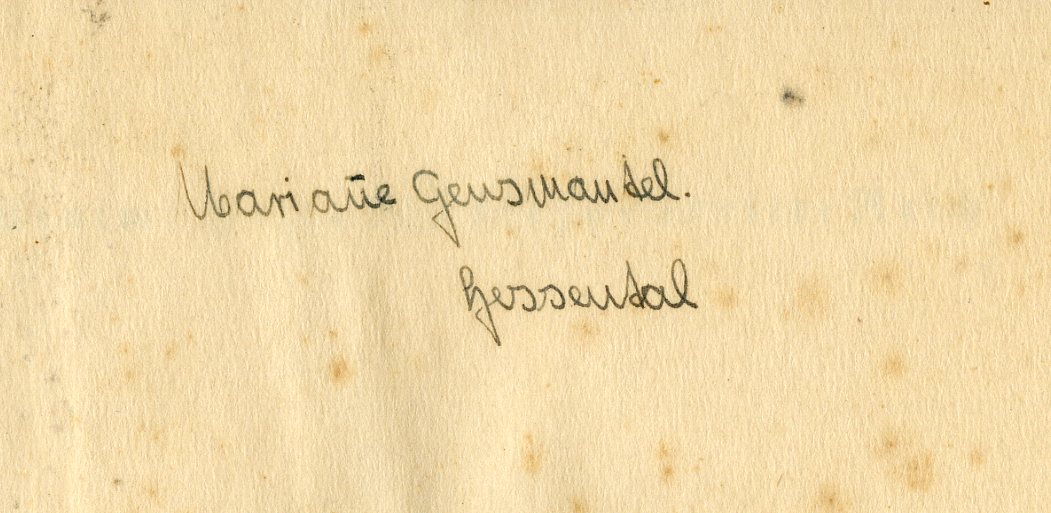 Marian̄e Gensmantel.
Hessental